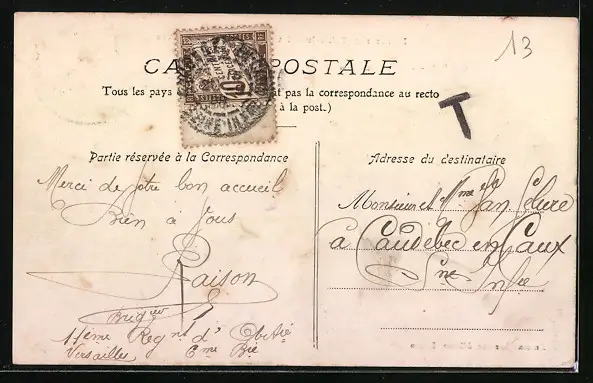 13
CARTE POSTALE
Tous les pays pas la correspondance au recto
à la post.)
T
10
Partie réservée à la Correspondance
Adresse du destinataire
Merci de votre bon accueil
Bien à Vous
Raison
Brigier
11ème Regnt d'
Versailles 6me Bie
Monsieur et Mme
à Caudebec en Caux
Sne Infre